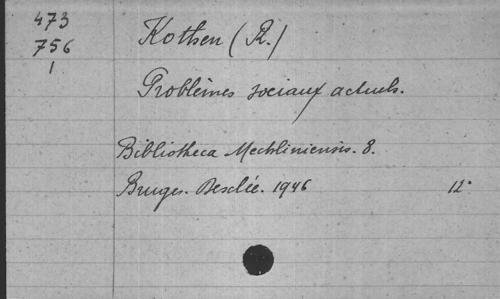 473
756
1
Kothen (R.)
Problèmes sociaux actuels.
Bibliotheca Mechliniensis. 8.
Bruges. Desclée. 1946 12°